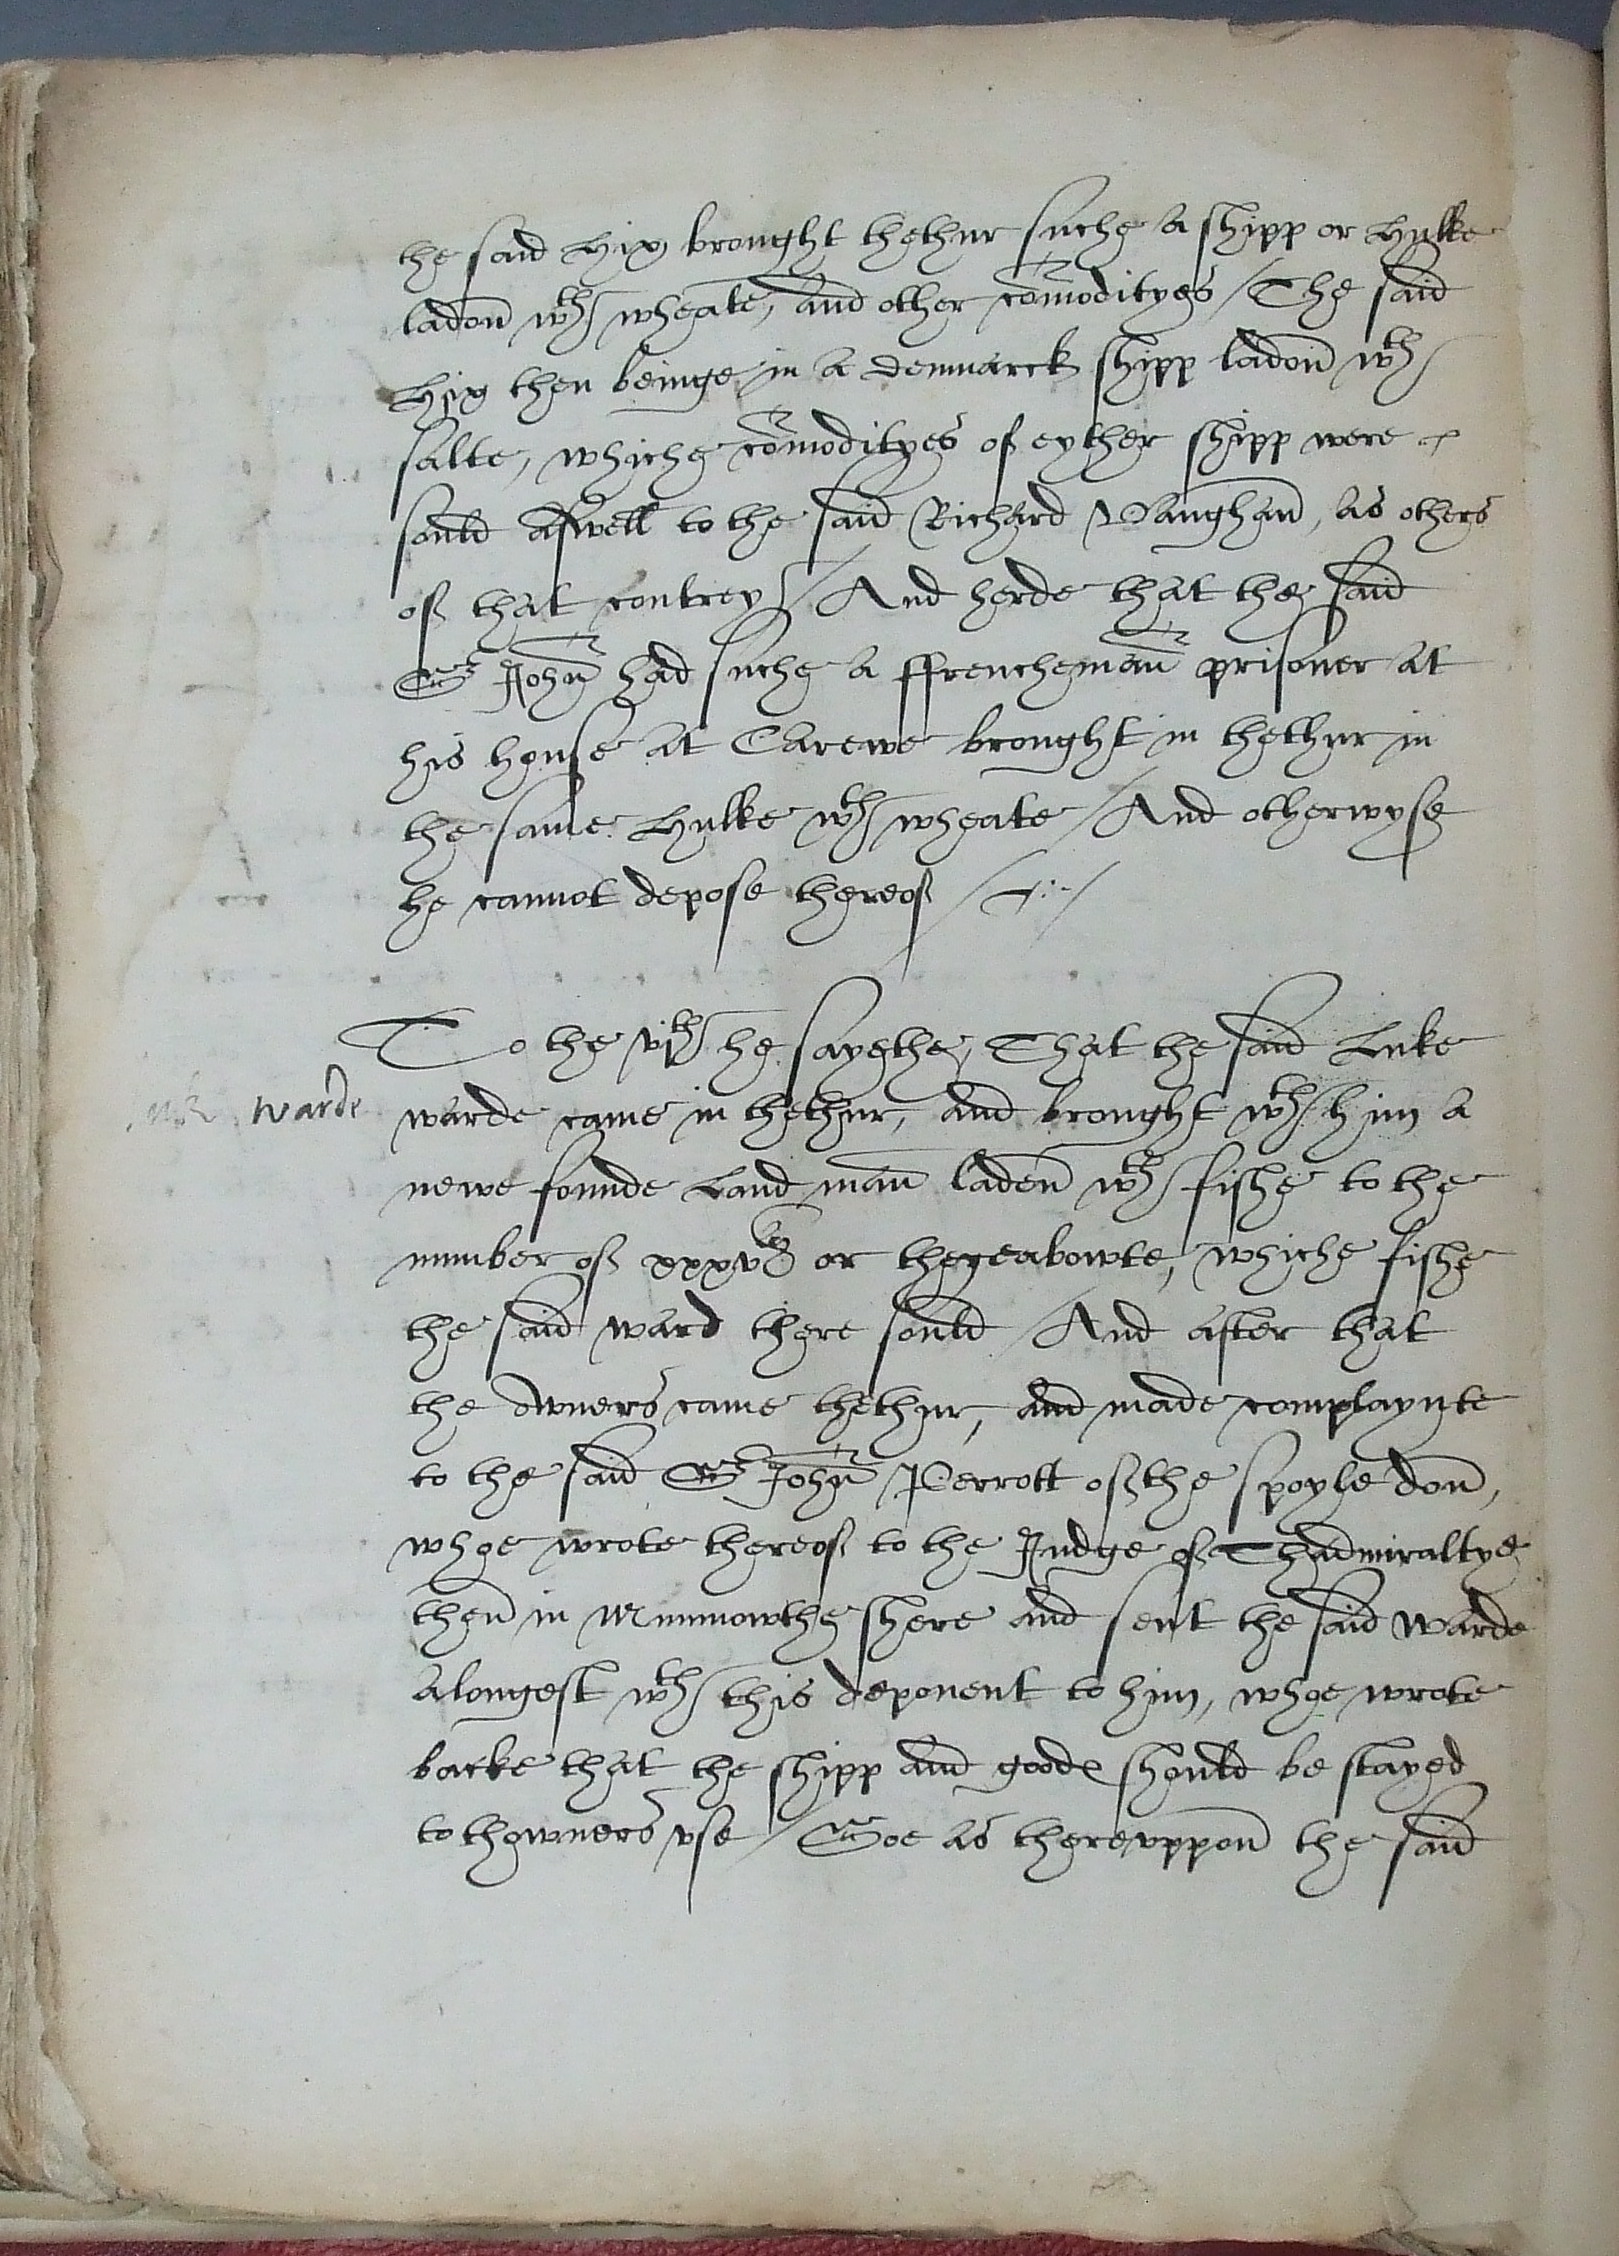 the said Hix brought thethur suche a shipp or Hulke
ladon wth wheate, and other comodityes / The said
Hix then beinge in a denmarck shipp ladon wth
salte, whiche comodityes of eyther shipp were
sould aswell to the said Richard Vaughan, as others
of that contrey / And herde that the said
Sr John had suche a ffrencheman prisoner at
his house at Carewe brought in thethur in
the same Hulke wth wheate / And otherwyse
he cannot depose thereof /
To the vjth he saythe, That the said Luke
Warde
warde came in thethur, and brought wth him a
newe founde Land man laden wth fishe to the
number of xxxvM or thereabowte, whiche fishe
the said ward there sould / And after that
the owners came thethur, and made complaynte
to the said Sr John Perrott of the spoyle don,
whoe wrote thereof to the Judge of Thadmiraltye
then in Munmowthe shere and sent the said Warde
alongest wth this deponent to him, whoe wrote
backe that the shipp and goodes should be stayed
to thowners vse / Soe as therevppon the said